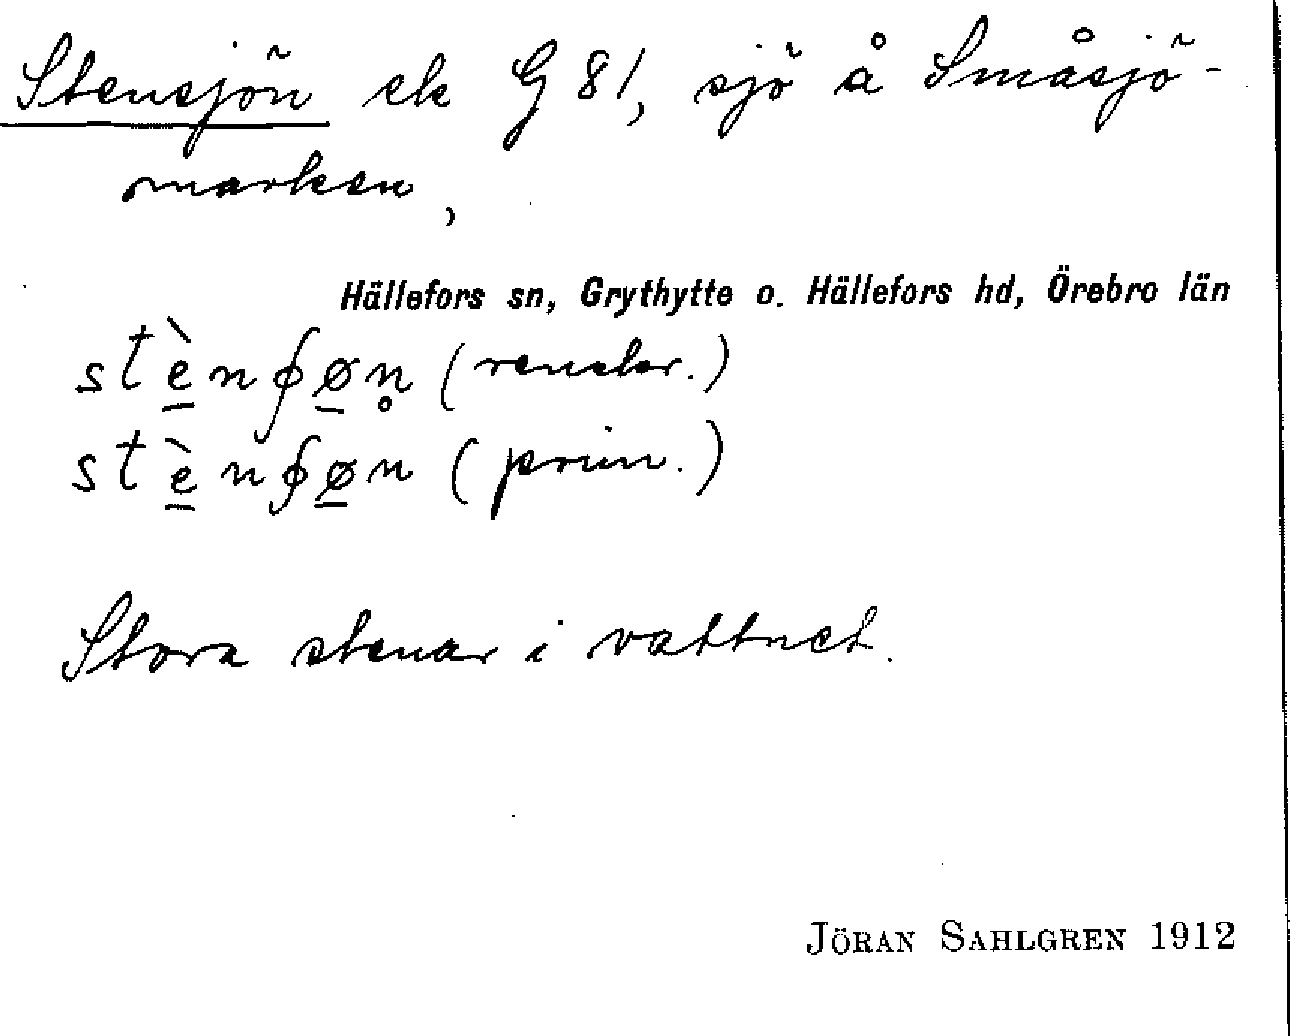 Stensjön ek G 81, sjö å Småsjö-
marken,
Hällefors sn, Grythytte o. Hällefors hd, Örebro län
stè̠nʃø̠n̥ (renskr.)
stè̠nʃø̠n (prim.)
Stora stenar i vattnet.
JÖRAN SAHLGREN 1912